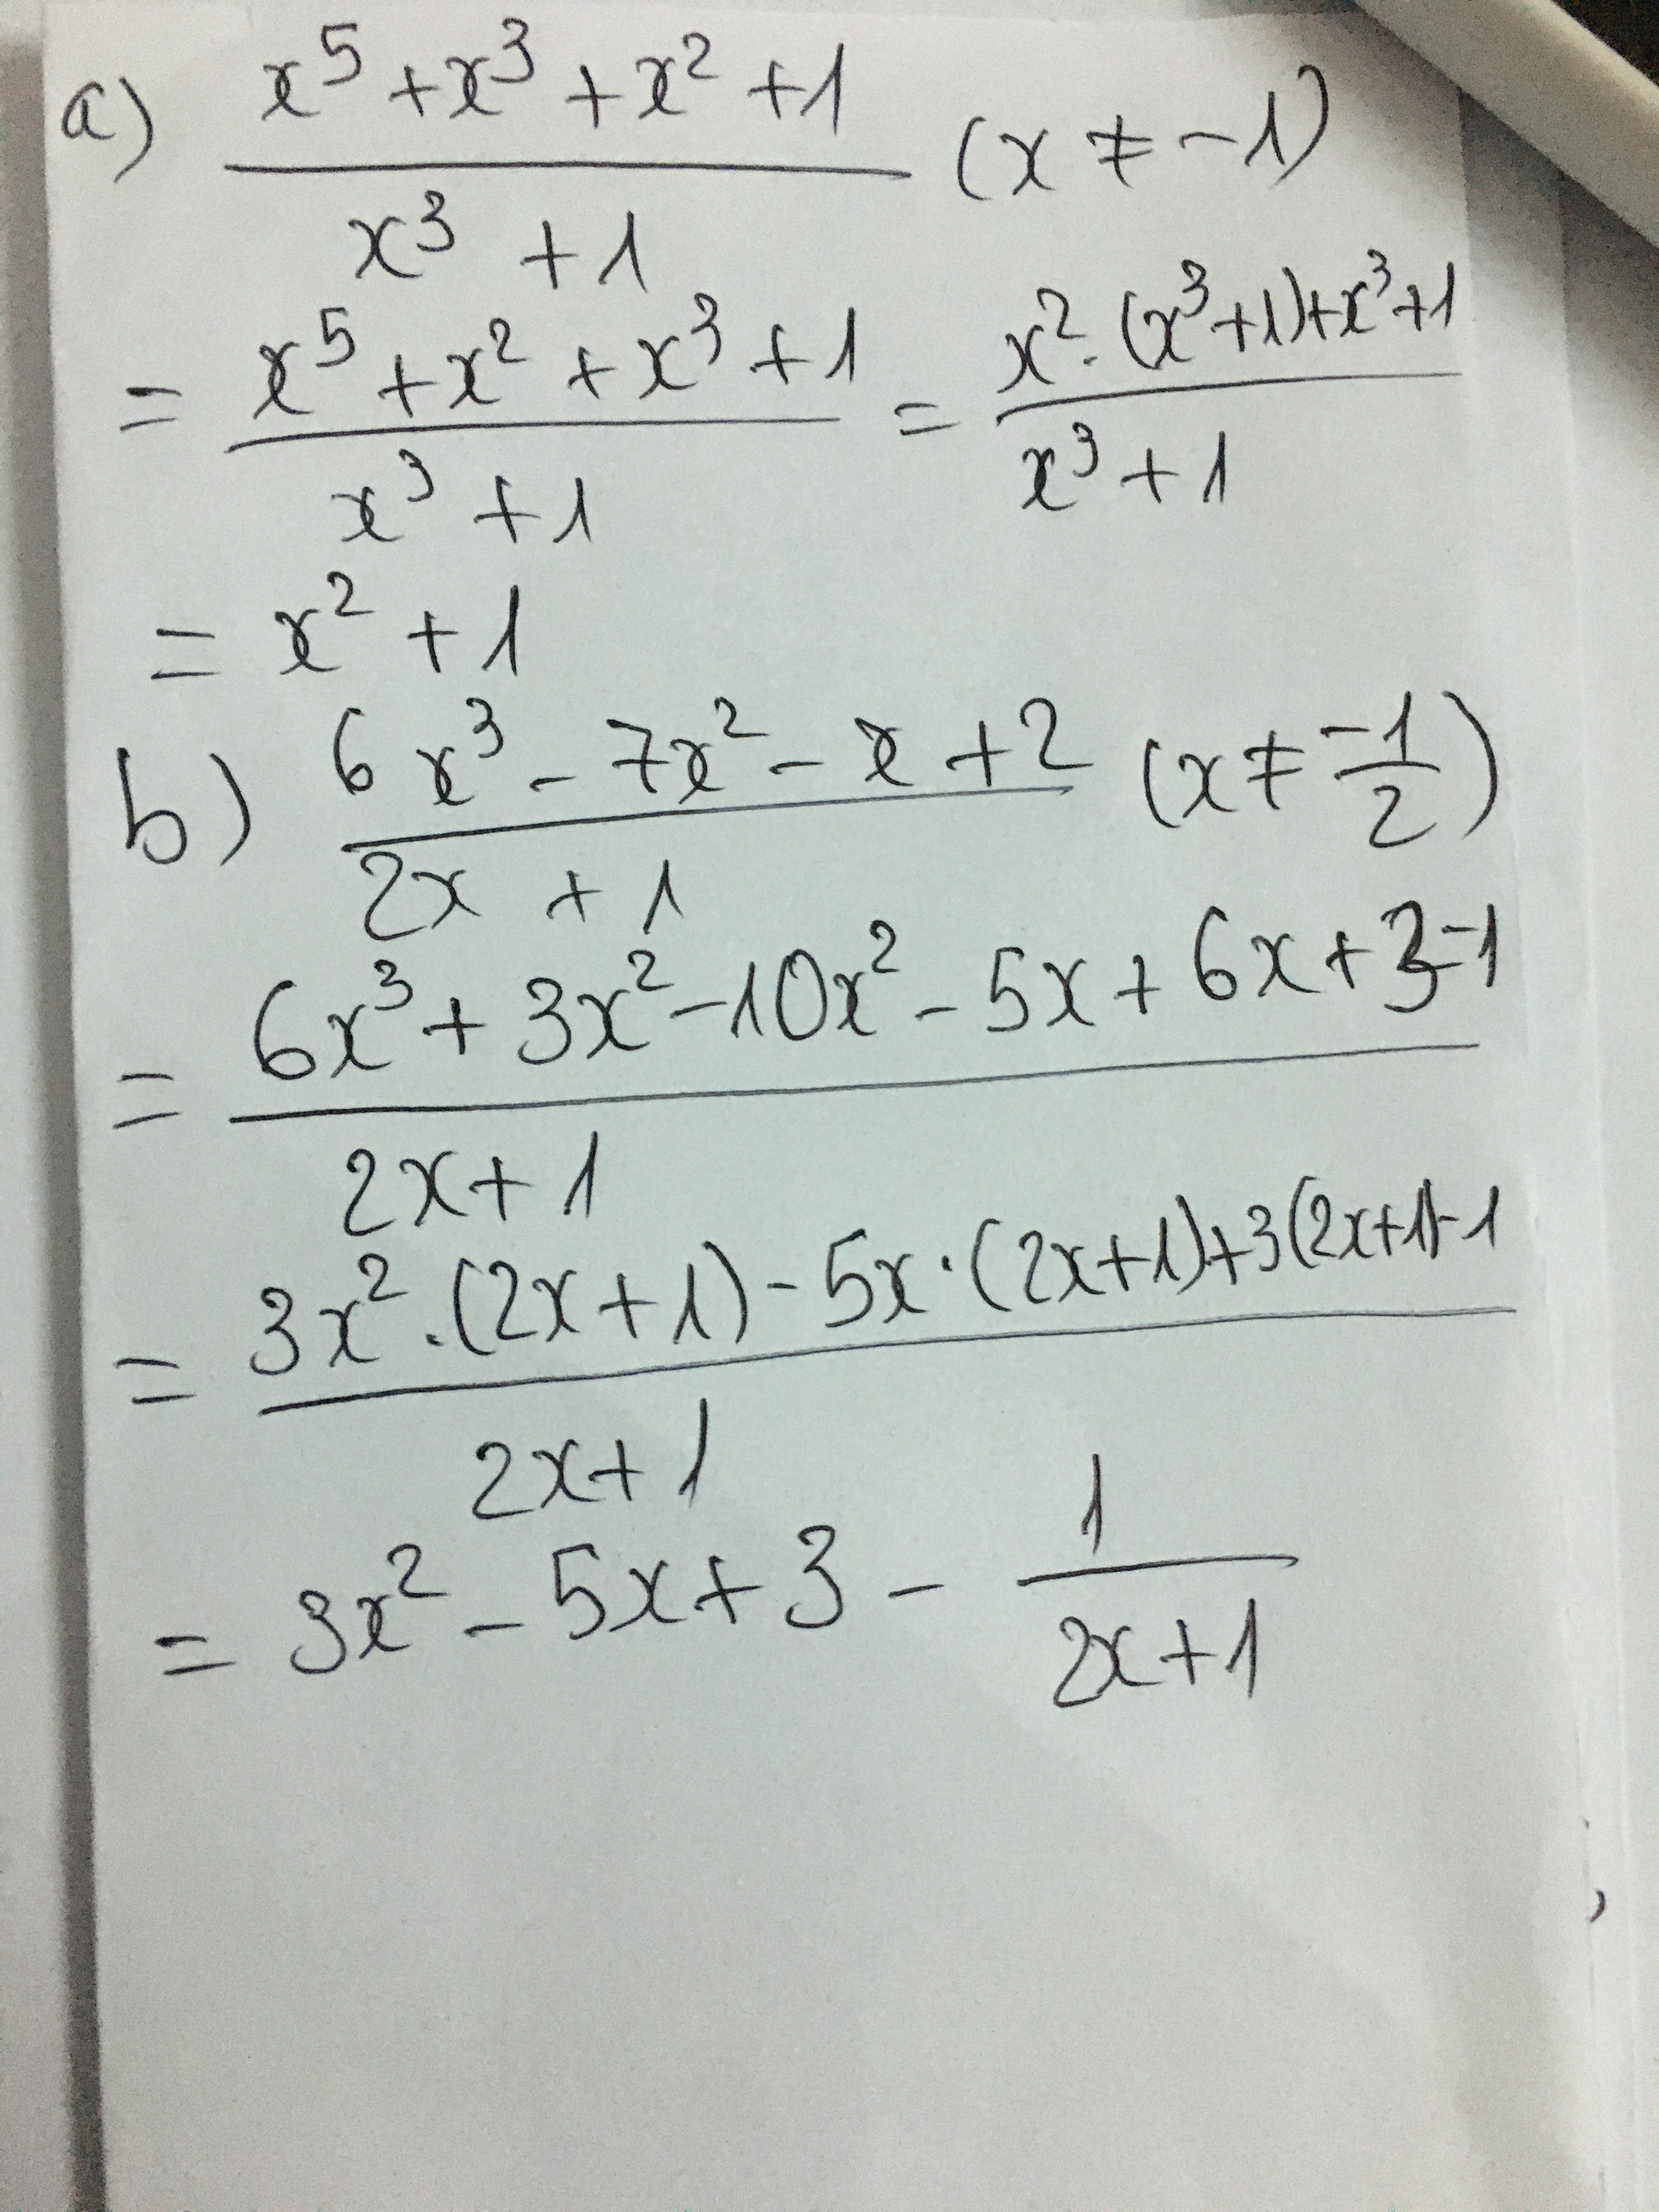 a) (x⁵ + x³ + x² + 1)/(x³ + 1) (x ≠ -1)
= (x⁵ + x² + x³ + 1)/(x³ + 1) = (x² . (x³ + 1) + x³ + 1)/(x³ + 1)
= x² + 1
b) (6x³ - 7x² - x + 2)/(2x + 1) (x ≠ -1/2)
= (6x³ + 3x² - 10x² - 5x + 6x + 3 - 1)/(2x + 1)
= (3x² . (2x + 1) - 5x . (2x + 1) + 3(2x + 1) - 1)/(2x + 1)
= 3x² - 5x + 3 - 1/(2x + 1)